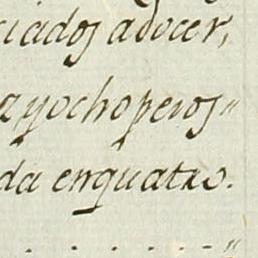 ciados adocer,
a y ocho pesos"
da enquatro.